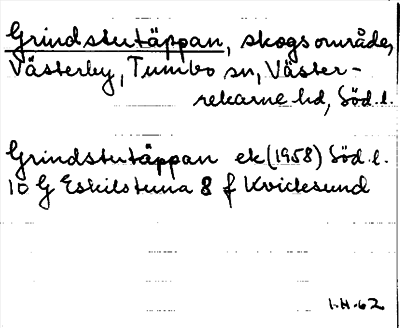 Grindstutäppan, skogsområde,
Västerby, Tumbo sn, Väster-
rekarne hd, Söd.l.
Grindstutäppan ek (1958) Söd.l.
10 G Eskilstuna 8 f Kvicksund
1.H.62